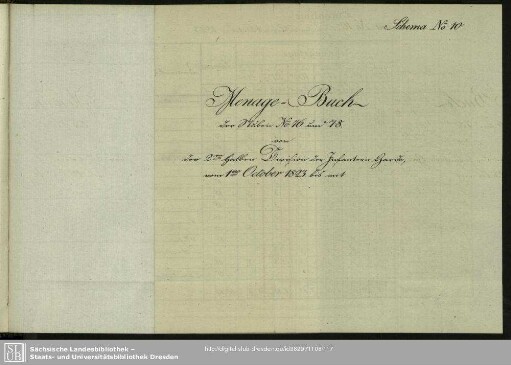 Schema No 10
Menage-Buch
der Stuben No 16 und 18.
von
der 2ten halben Division der Infanterie Garde,
vom 1ten October 1823 bis mit
Sächsische Landesbibliothek –
Staats- und Universitätsbibliothek Dresden